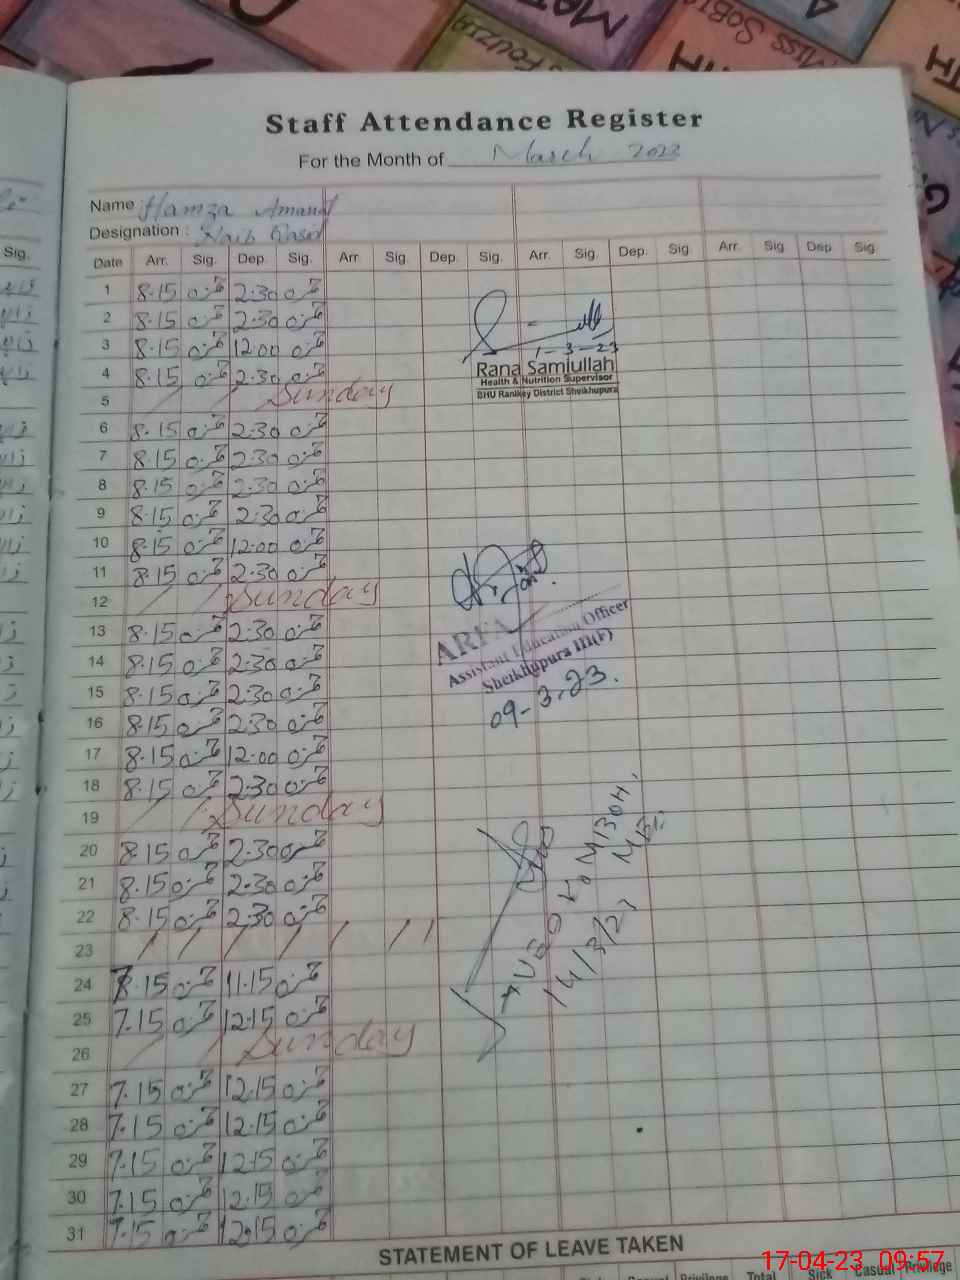 MATH
MISS SOBIA
FOUZIA
Staff Attendance Register
For the Month of March 2023
Name Hamza Amanat
Designation : Naib Qasid
Sig. Date Arr. Sig. Dep. Sig. Arr. Sig. Dep. Sig. Arr. Sig. Dep. Sig. Arr. Sig. Dep Sig.
1 8.15 حمزہ 2:30 حمزہ
2 8.15 حمزہ 2:30 حمزہ
3 8.15 حمزہ 12:00 حمزہ
4 8.15 حمزہ 2:30 حمزہ
5 / / Sunday
6 8.15 حمزہ 2:30 حمزہ
7 8.15 حمزہ 2:30 حمزہ
8 8.15 حمزہ 2:30 حمزہ
9 8.15 حمزہ 2:30 حمزہ
10 8.15 حمزہ 12:00 حمزہ
11 8.15 حمزہ 2:30 حمزہ
12 / / Sunday
13 8.15 حمزہ 2:30 حمزہ
14 8.15 حمزہ 2:30 حمزہ
15 8.15 حمزہ 2:30 حمزہ
16 8.15 حمزہ 2:30 حمزہ
17 8.15 حمزہ 12:00 حمزہ
18 8.15 حمزہ 2:30 حمزہ
19 / / Sunday
20 8.15 حمزہ 2:30 حمزہ
21 8.15 حمزہ 2:30 حمزہ
22 8.15 حمزہ 2:30 حمزہ
23 / / / / / / /
24 8.15 حمزہ 11.15 حمزہ
25 7.15 حمزہ 12.15 حمزہ
26 / / Sunday
27 7.15 حمزہ 12.15 حمزہ
28 7.15 حمزہ 12.15 حمزہ
29 7.15 حمزہ 12.15 حمزہ
30 7.15 حمزہ 12.15 حمزہ
31 7.15 حمزہ 12.15 حمزہ
1-3-23
Rana Samiullah
Health & Nutrition Supervisor
BHU Ranikey District Sheikhupura
ARFA
Assistant Education Officer
Sheikhupura III(F)
09-3-23.
14/3/23
STATEMENT OF LEAVE TAKEN
Casual Privilege Total Sick Casual Privilege
17-04-23 09:57